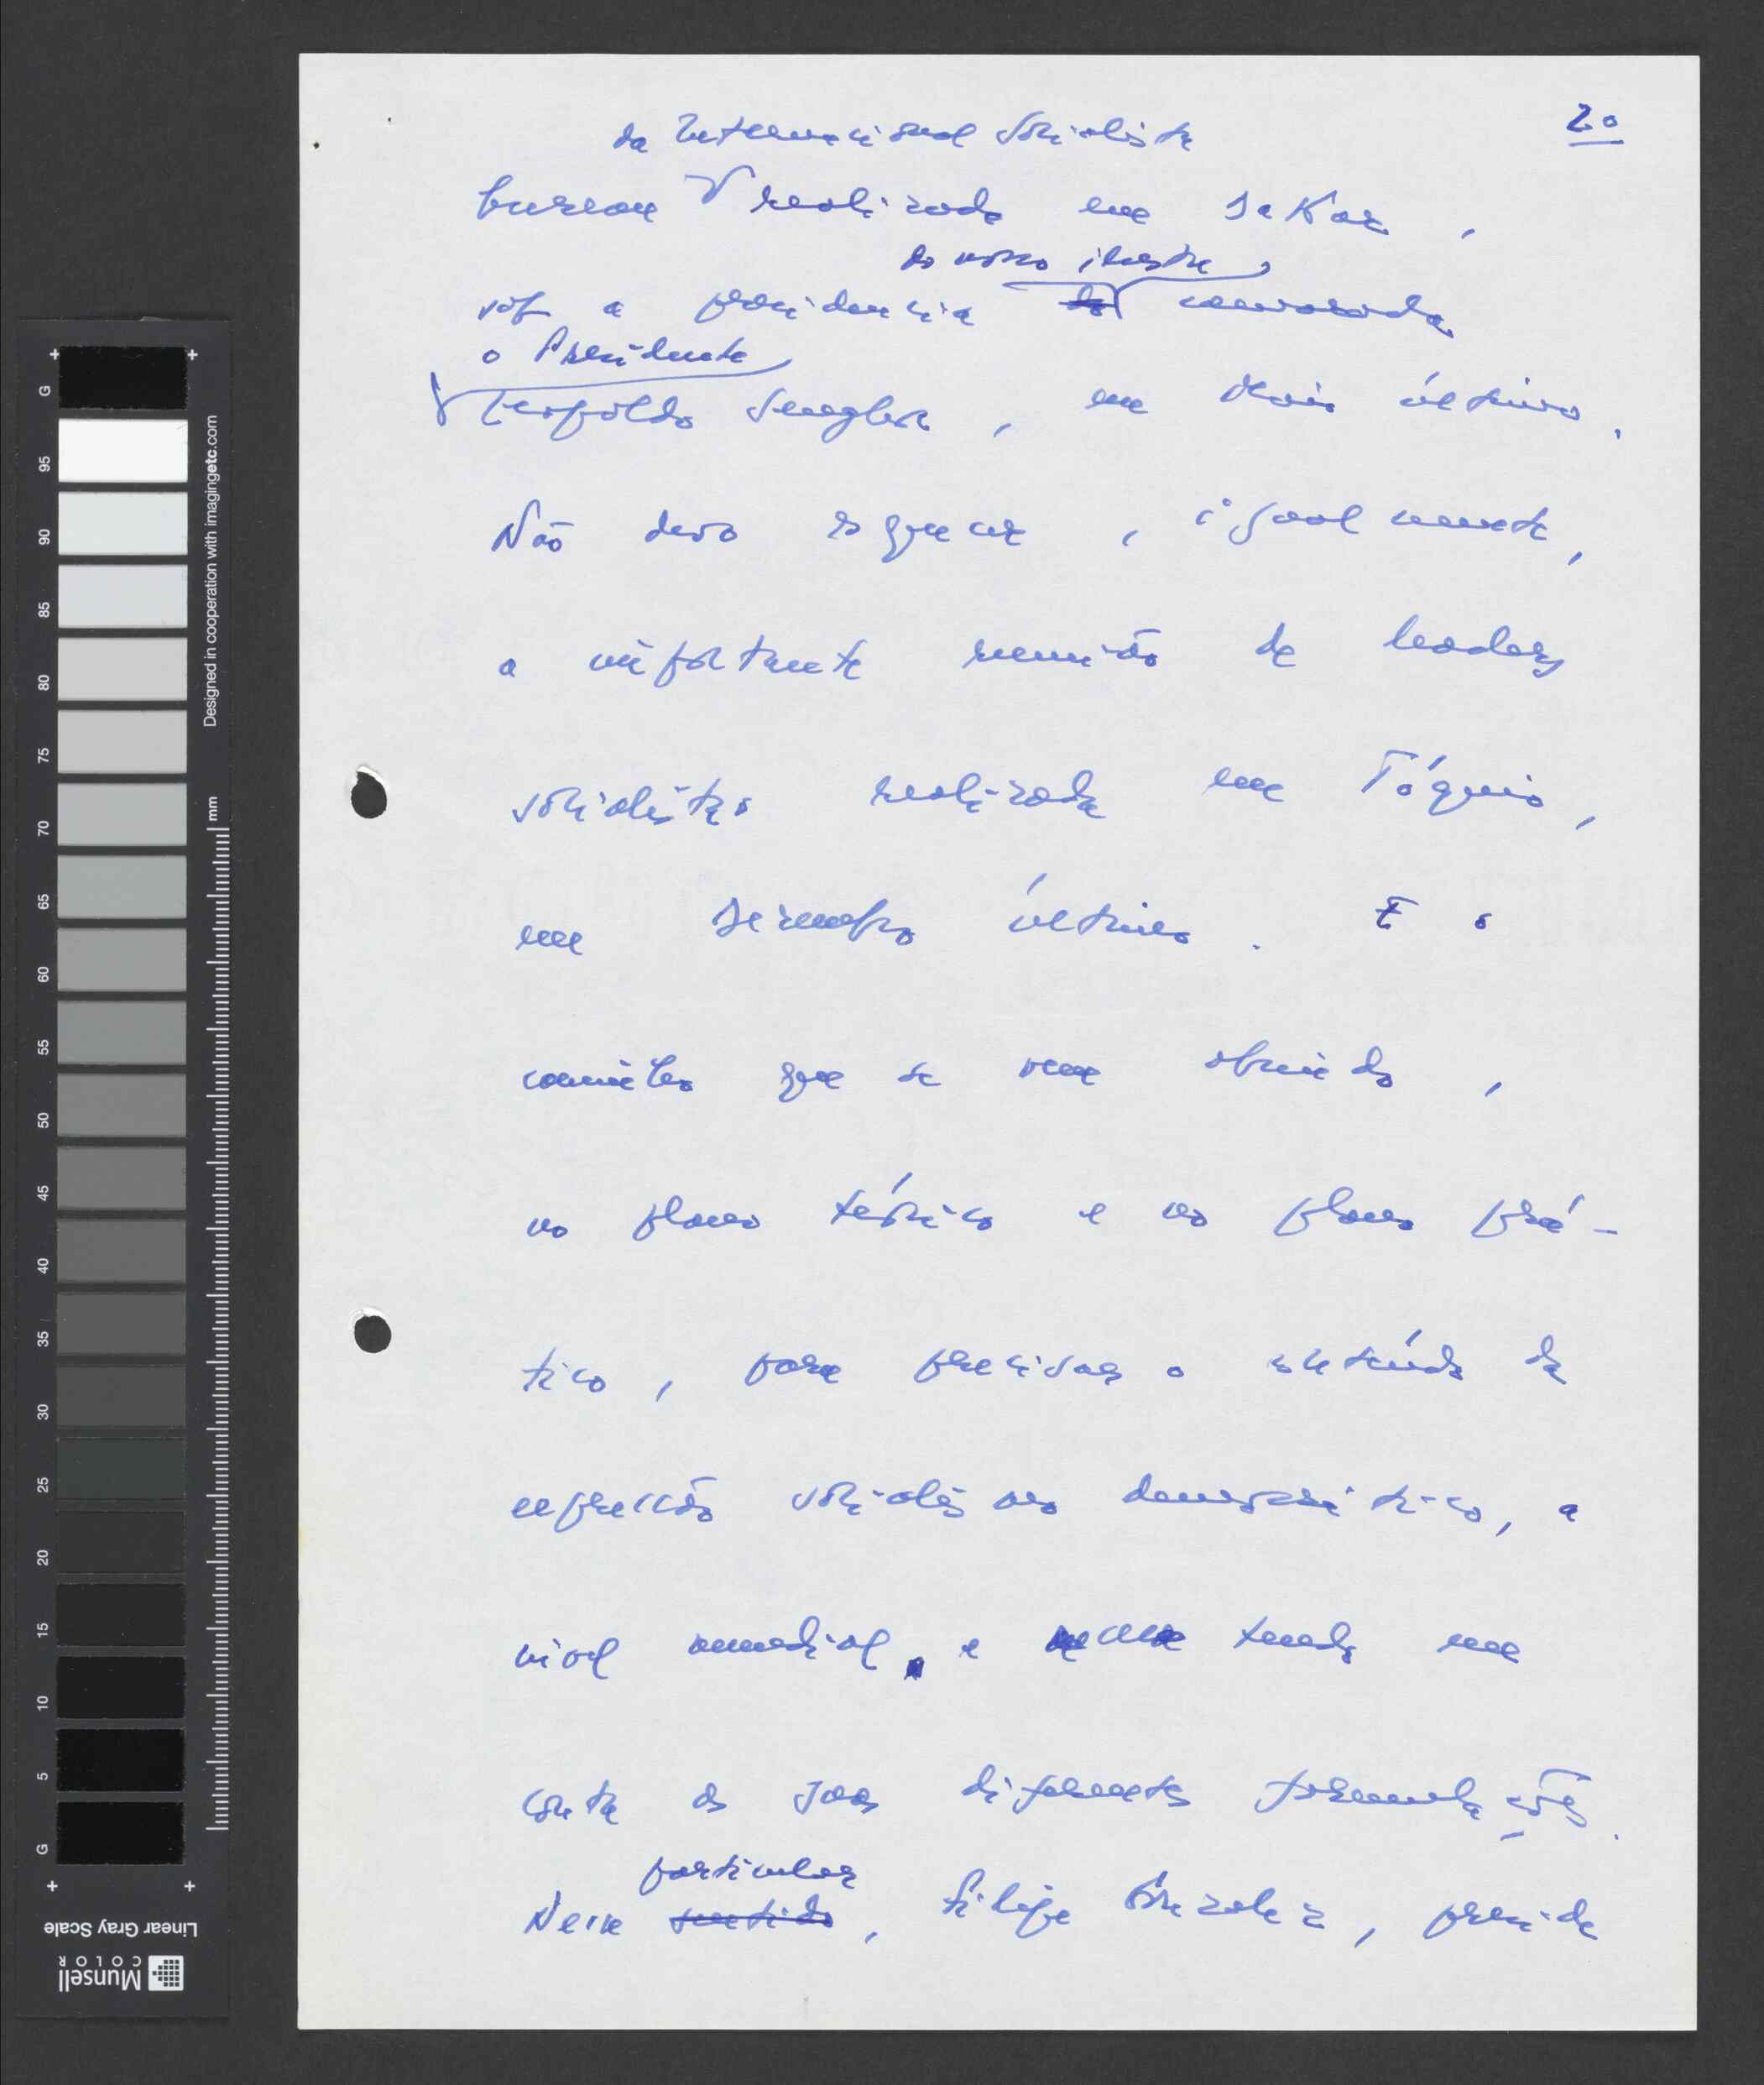 20
da Internacional Socialista
bureau realizada em Dakar,
do nosso ilustre
sob a presidencia do camarada
o Presidente
Leopoldo Senghor, em Maio último.
Não devo esquecer, igualmente,
a importante reunião de leaders
socialistas realizada em Tóquio,
em Dezembro último. É o
caminho que se vem abrindo,
no plano teórico e no plano prá-
tico, para precisar o conteúdo da
expressão socialismo democrático, a
nivel mundial, e tendo em
conta as suas diferentes formulações.
particular
Nesse sentido, Filipe Gonzalez, preside
G
95
90
85
80
75
70
65
60
55
50
45
40
35
30
25
20
15
10
5
G
mm
Designed in cooperation with imagingetc.com
Linear Gray Scale
Munsell
COLOR